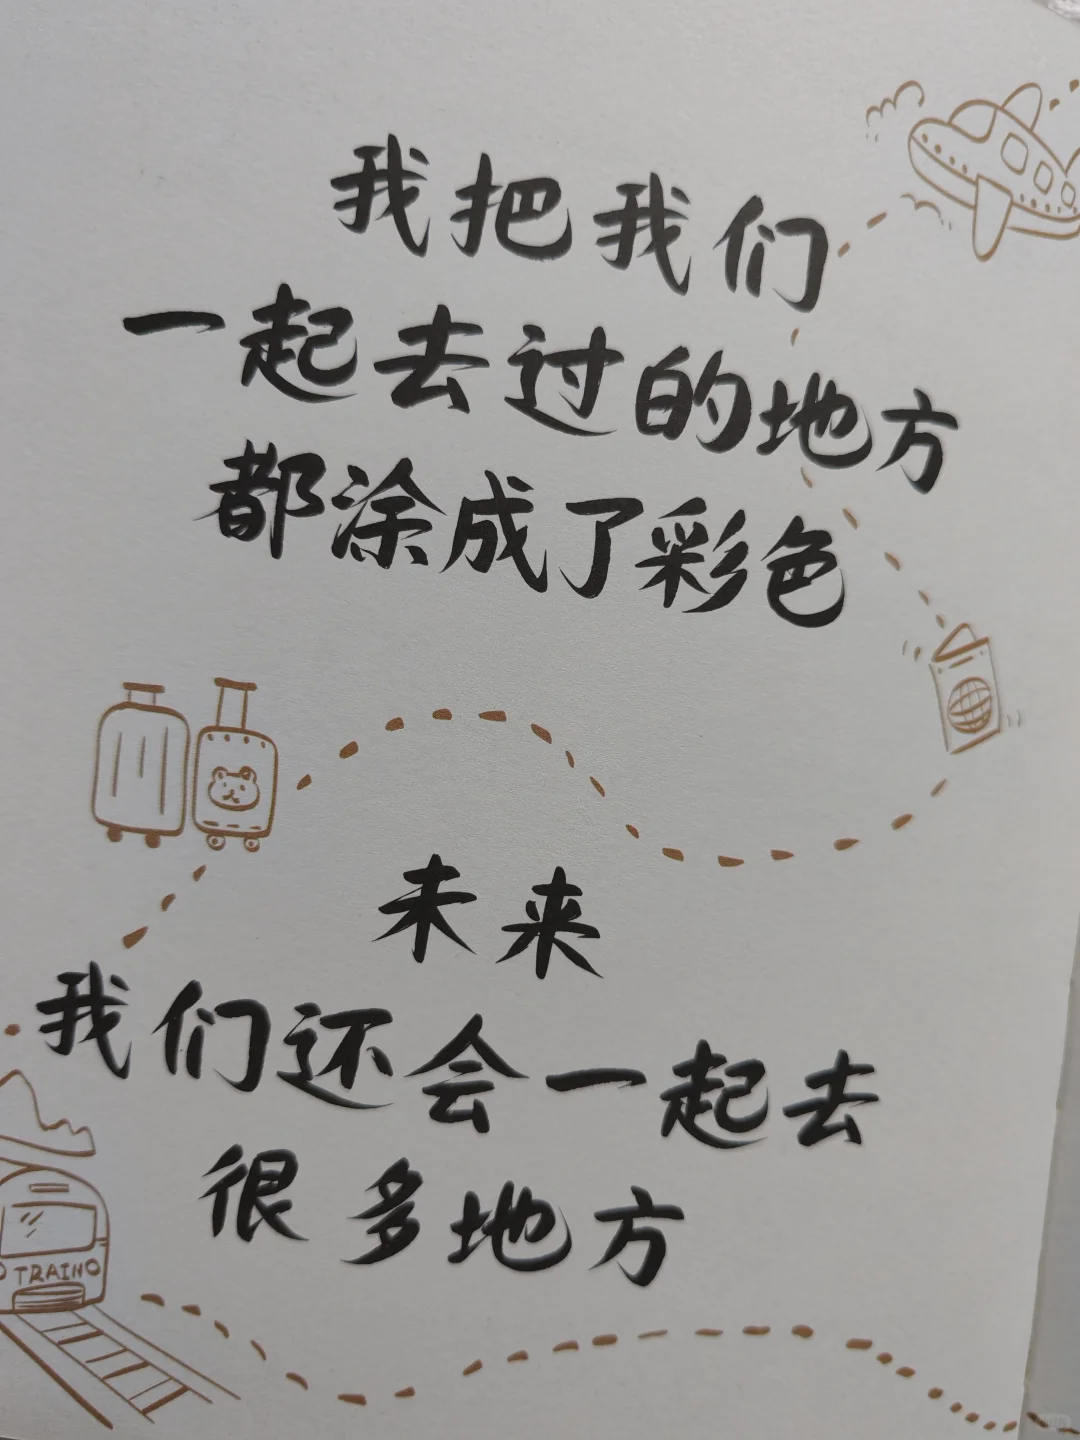 我把我们
一起去过的地方
都涂成了彩色
未来
我们还会一起去
很多地方
TRAIN